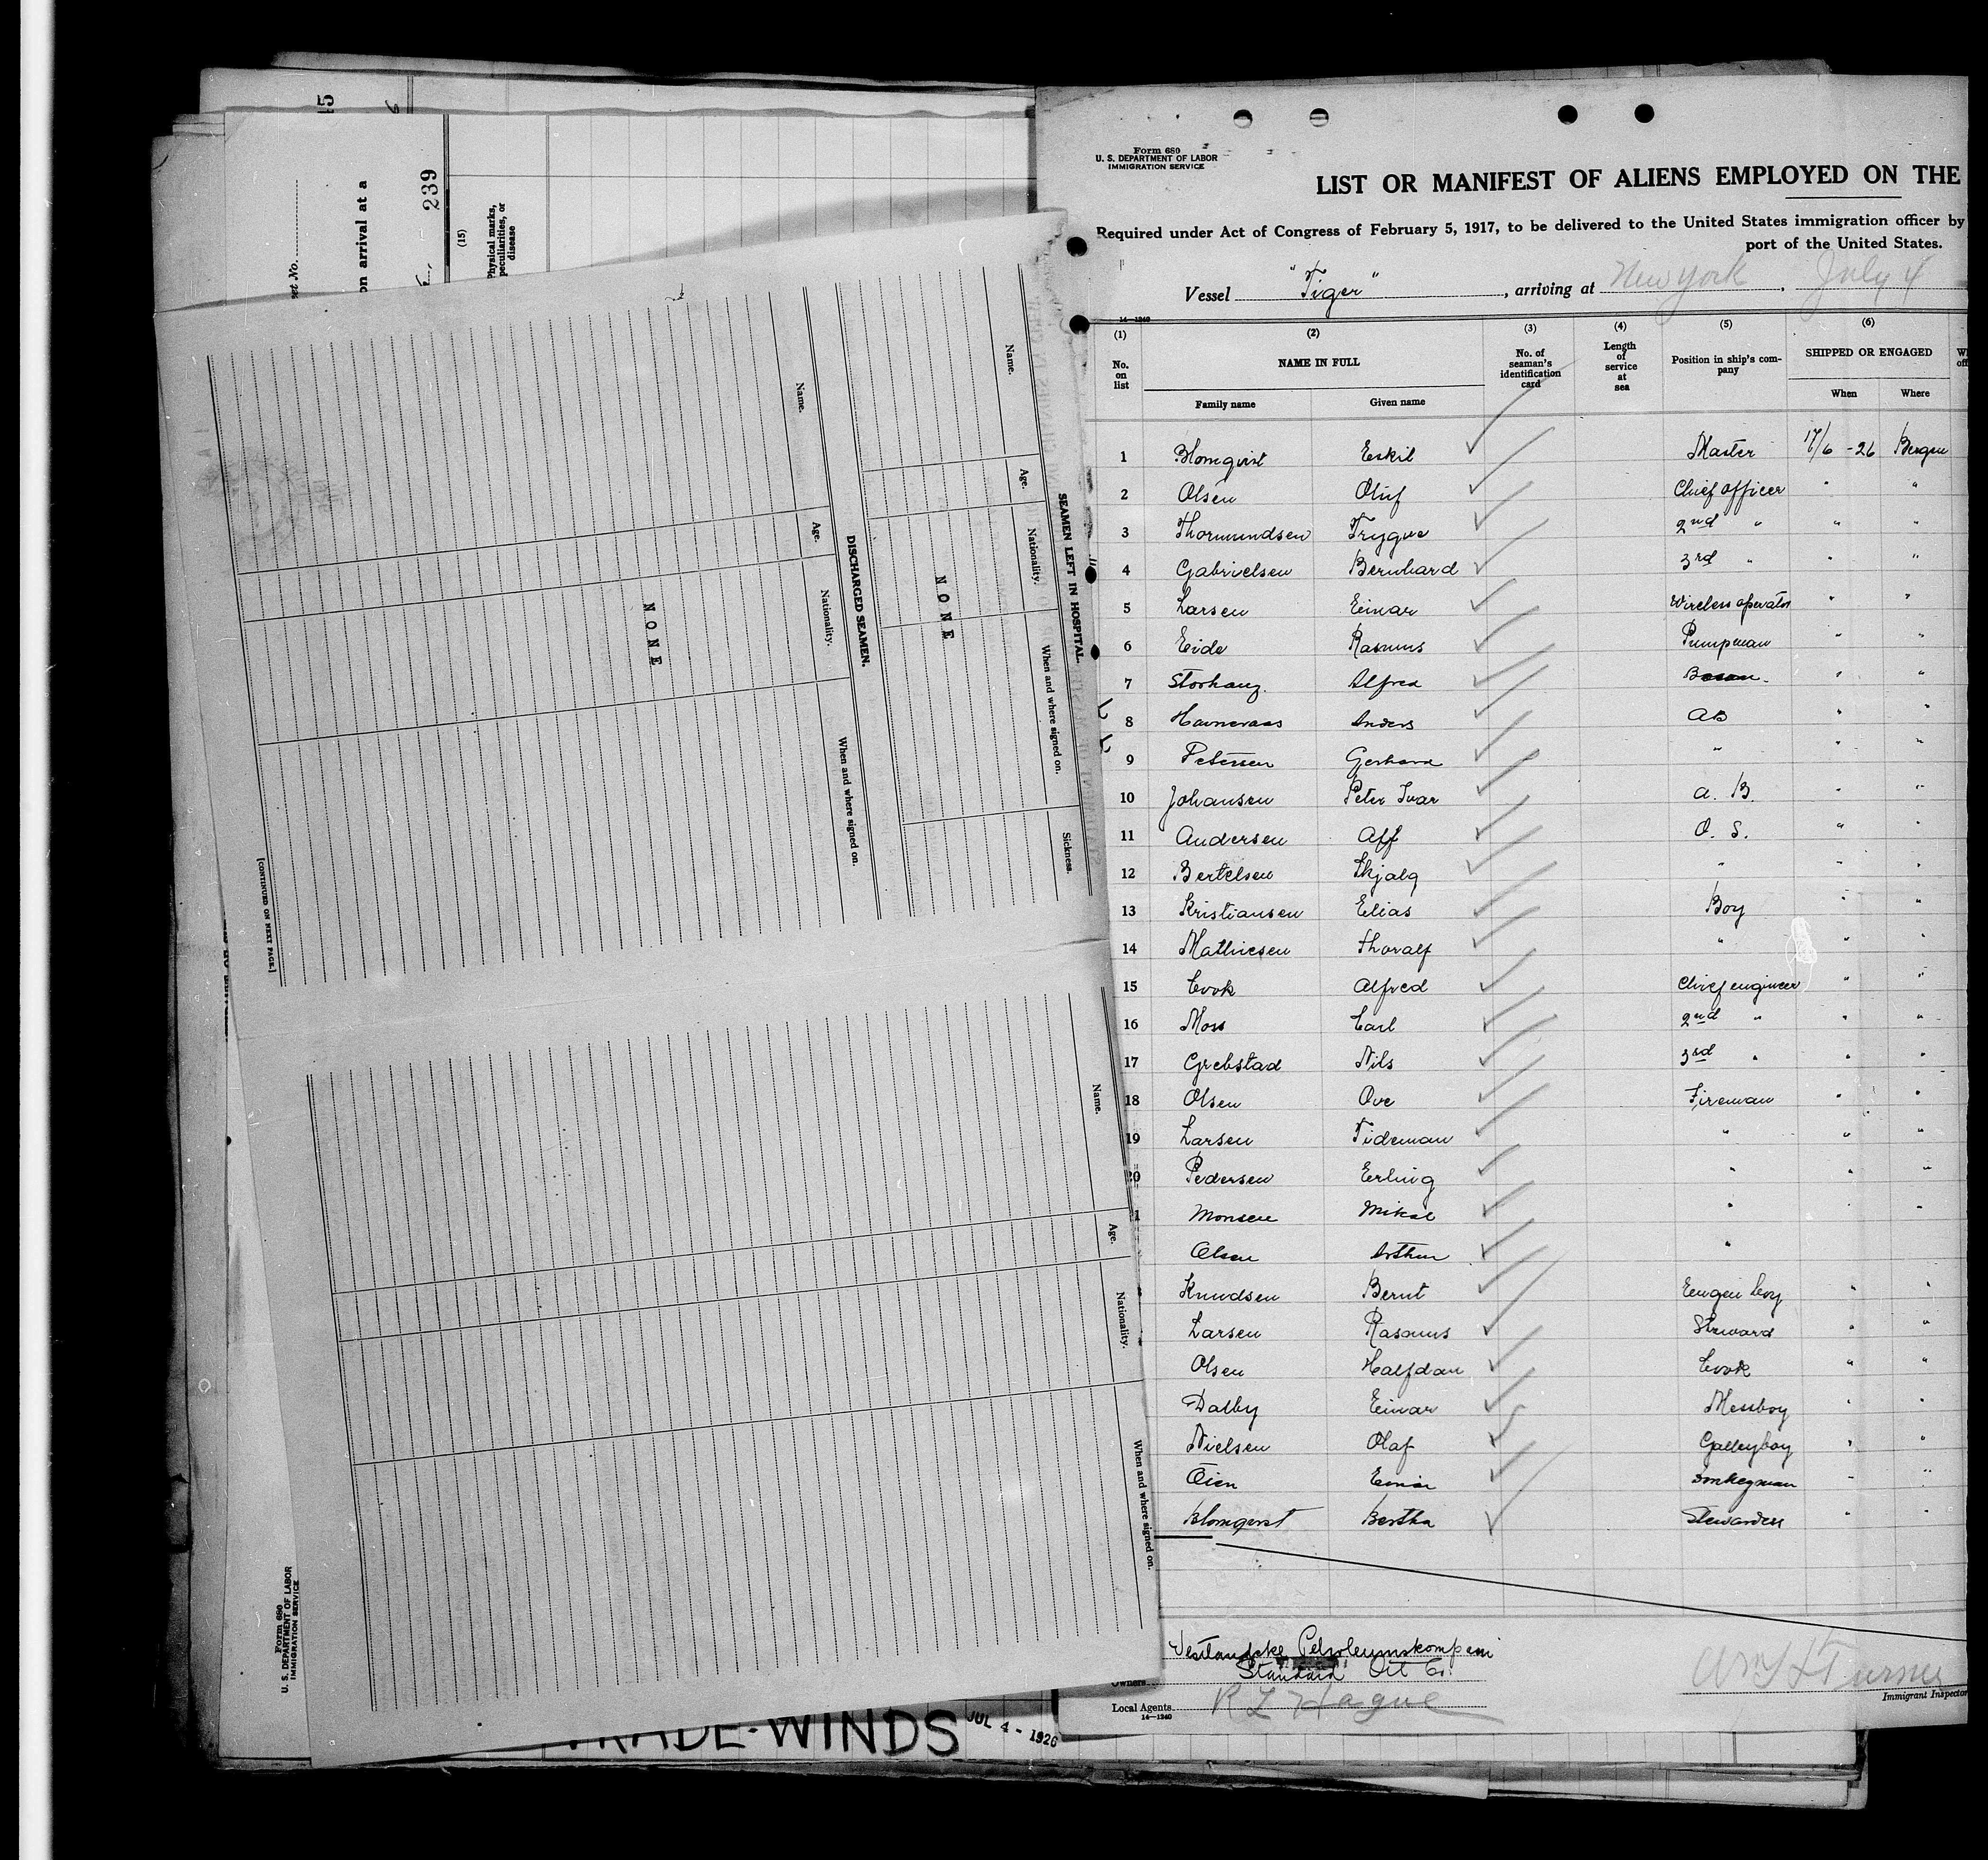 15
239
on arrival at a
(15)
Physical marks, peculiarities, or disease
SEAMEN LEFT IN HOSPITAL.
Name.
Age.
Nationality.
When and where signed on.
Sickness.
NONE
DISCHARGED SEAMEN.
Name.
Age.
Nationality.
When and where signed on.
NONE
[CONTINUED ON NEXT PAGE.]
Name.
Age.
Nationality.
When and where signed on.
Form 680
U. S. DEPARTMENT OF LABOR
IMMIGRATION SERVICE
TRADE-WINDS JUL 4 - 1926
Form 680
U. S. DEPARTMENT OF LABOR
IMMIGRATION SERVICE
LIST OR MANIFEST OF ALIENS EMPLOYED ON THE
Required under Act of Congress of February 5, 1917, to be delivered to the United States immigration officer by
port of the United States.
Vessel "Tiger", arriving at New York, July 4
14—1240
(1) (2) (3) (4) (5) (6)
No. on list NAME IN FULL No. of seaman's identification card Length of service at sea Position in ship's company SHIPPED OR ENGAGED
Family name Given name When Where
1 Blomqvist Eskil Master 17/6 -26 Bergen
2 Olsen Oluf Chief officer " "
3 Thormundsen Trygve 2nd " " "
4 Gabrielsen Bernhard 3rd " " "
5 Larsen Einar Wireless operator " "
6 Eide Rasmus Pumpman " "
7 Storhaug. Alfred Bosun. " "
8 Anders AB " "
9 Petersen Gerhard " " "
10 Johansen Peter Ivar A. B. " "
11 Andersen Alf O. S. " "
12 Bertelsen Skjalg " " "
13 Kristiansen Elias Boy " "
14 Mathiesen Thoralf " " "
15 Cook Alfred Chief engineer " "
16 Moss Carl 2nd " " "
17 Grebstad Nils 3rd " " "
18 Olsen Ove Fireman " "
19 Larsen Tideman " " "
20 Pedersen Erling " " "
1 Monsen Mikal " " "
Olsen Arthur "
Knudsen Bernt Engen boy " "
Larsen Rasmus Steward " "
Olsen Halfdan Cook " "
Dalby Einar Messboy " "
Nielsen Olaf Galleyboy " "
Oien Einar Donkeyman " "
Blomqvist Bertha Stewardess " "
Vestlandske Petroleumskompani
Standard Oil Co.
Owners
Local Agents R L Hague
14—1240
Wm H Turner
Immigrant Inspector